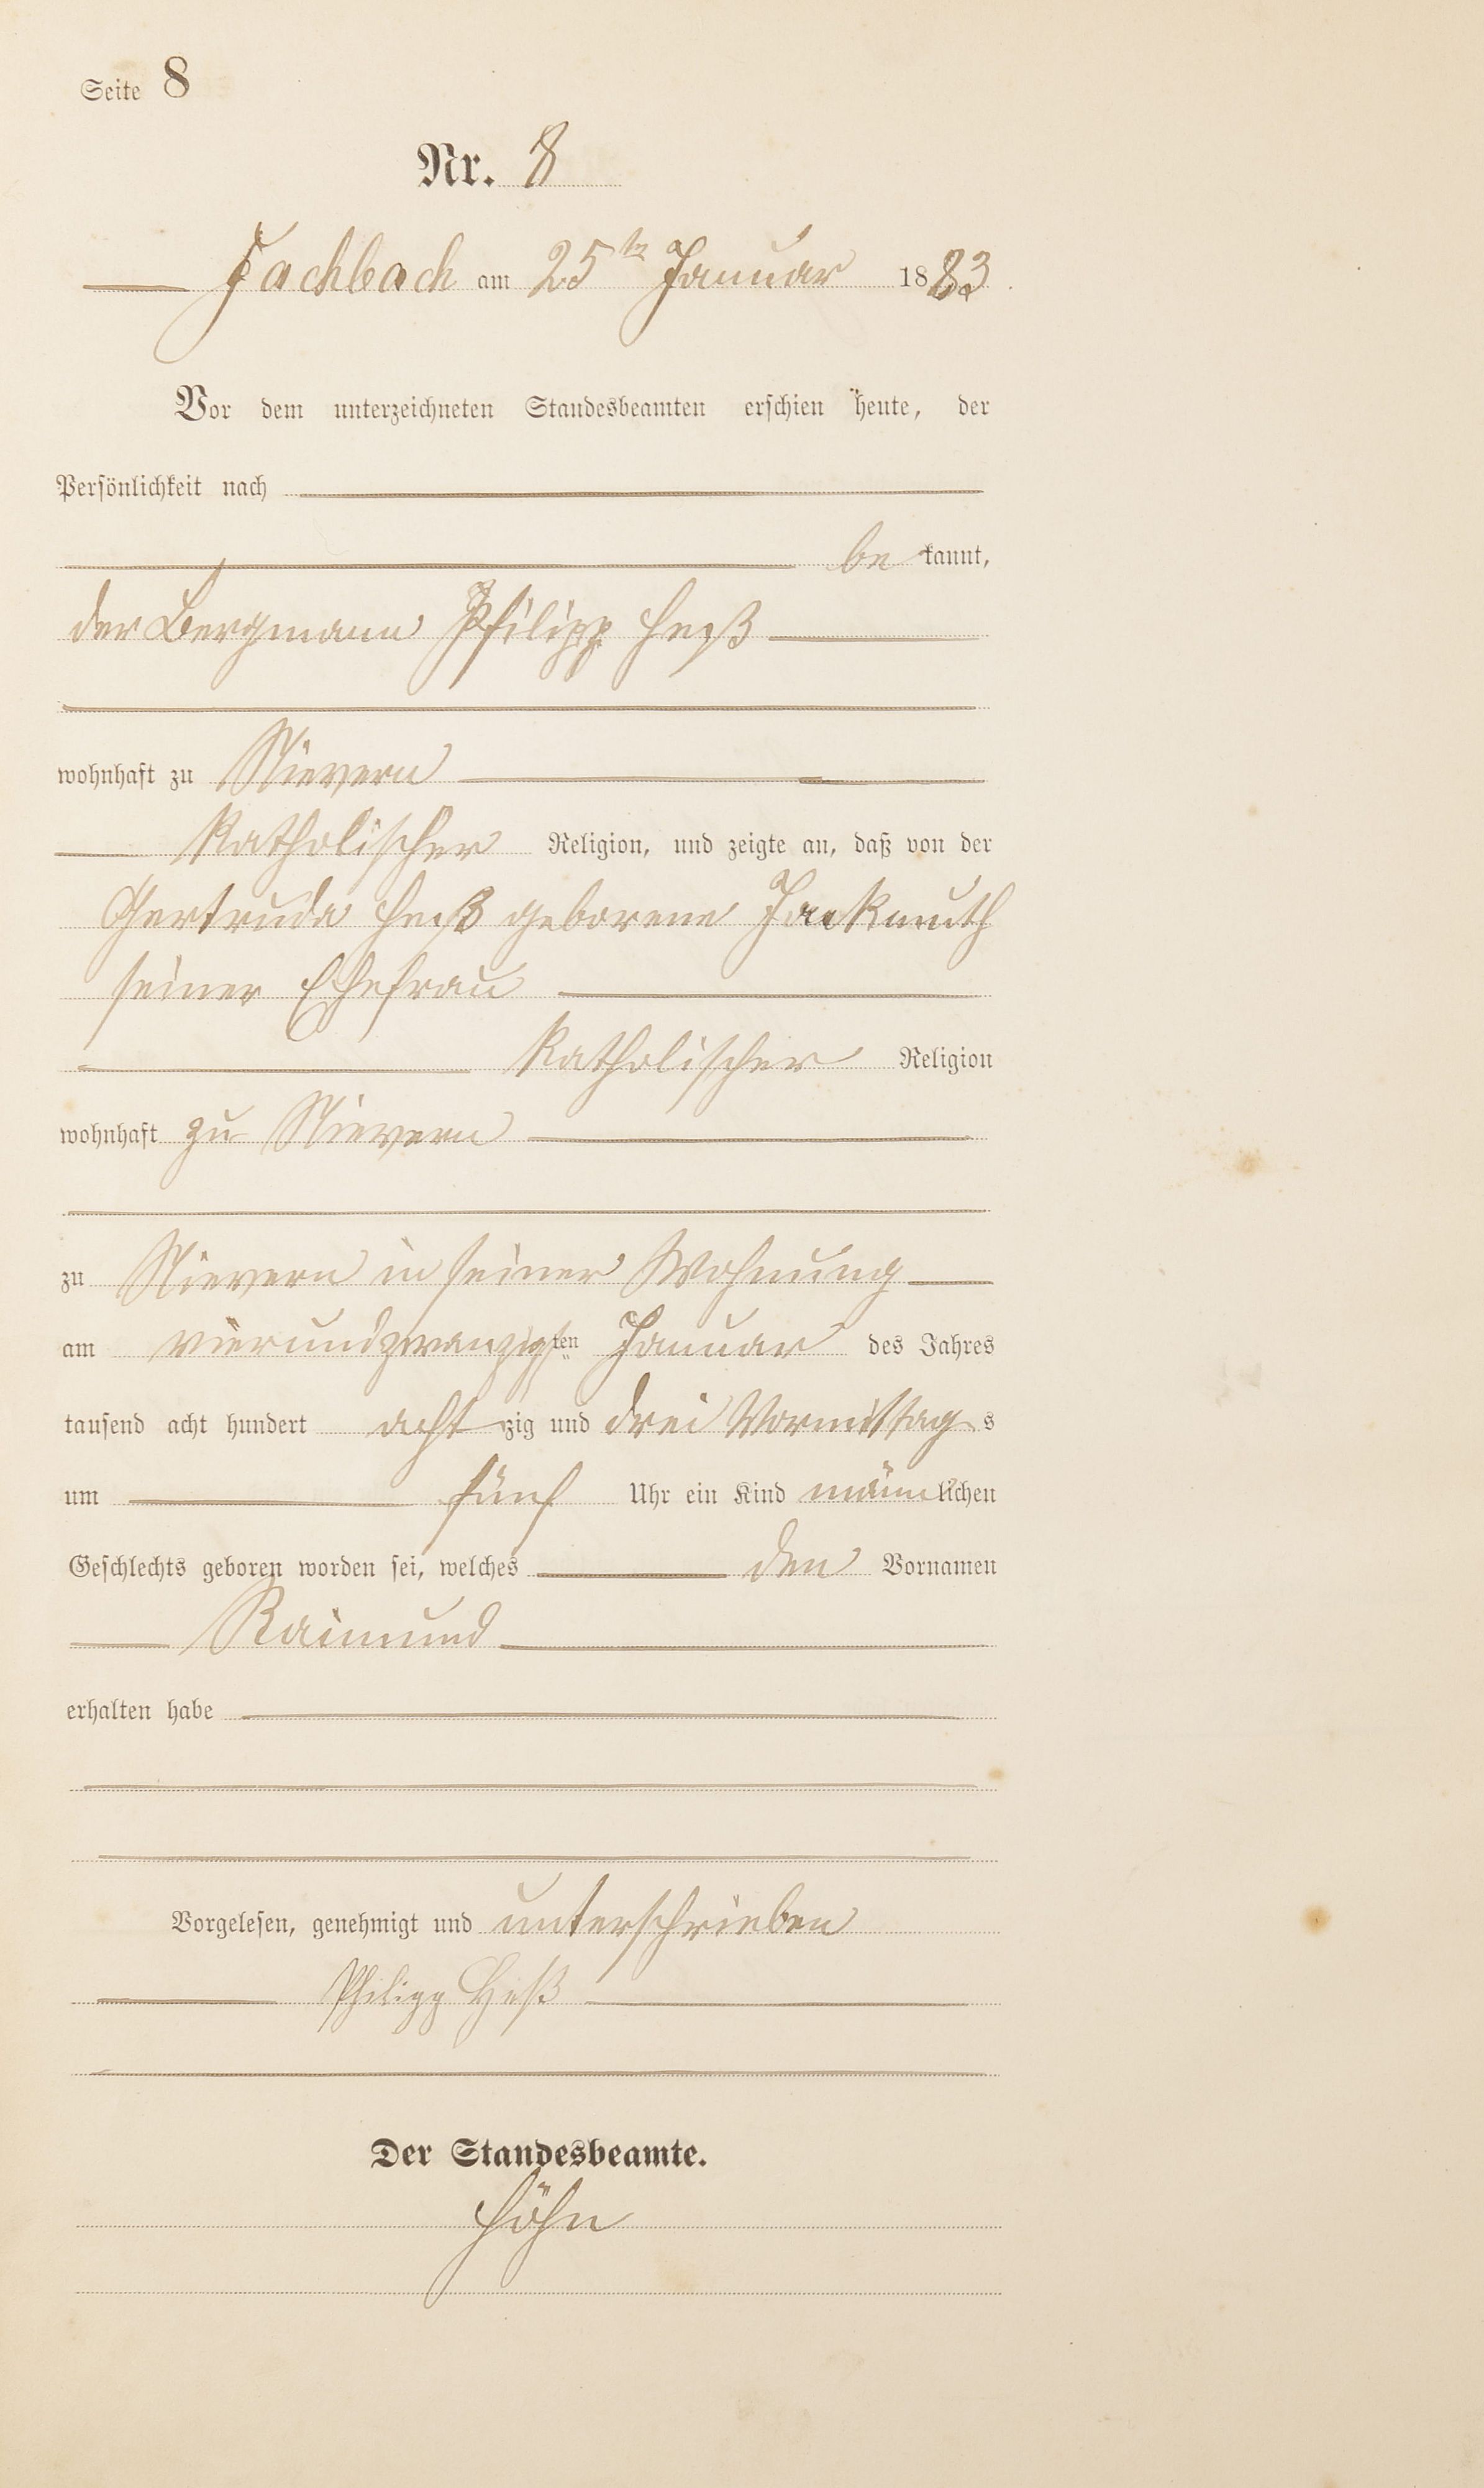 Seite 8
Nr. 8
Fachbach am 25ten Januar 1883
Vor dem unterzeichneten Standesbeamten erschien heute, der
Persönlichkeit nach
be kannt,
der Bergmann Philipp Heß
wohnhaft zu Nievern
Katholischer Religion, und zeigte an, daß von der
Gertruda Heß geborene
seiner Ehefrau
Katholischer Religion
wohnhaft zu Nievern
zu Nievern in seiner Wohnung
am vierundzwanzigsten Januar des Jahres
tausend acht hundert acht zig und drei Vormittag s
um fünf Uhr ein Kind männlichen
Geschlechts geboren worden sei, welches den Vornamen
Raimund
erhalten habe
Vorgelesen, genehmigt und unterschrieben
Philipp Heß
Der Standesbeamte.
Höhn